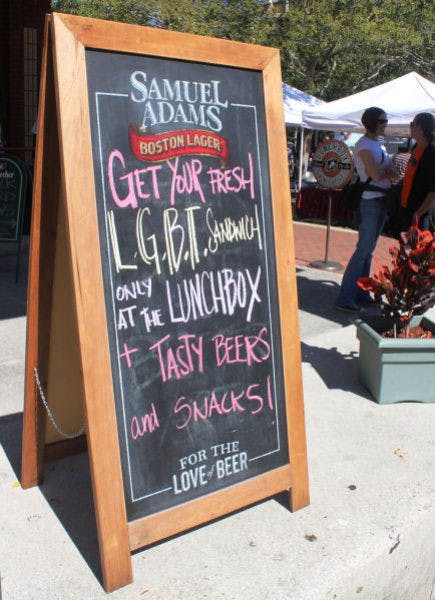 SAMUEL
ADAMS
BOSTON LAGER
GET YOUR FRESH
L.G.B.T. SANDWICH
ONLY
AT THE LUNCHBOX
+ TASTY BEERS
and SNACKS!
FOR THE
LOVE of BEER